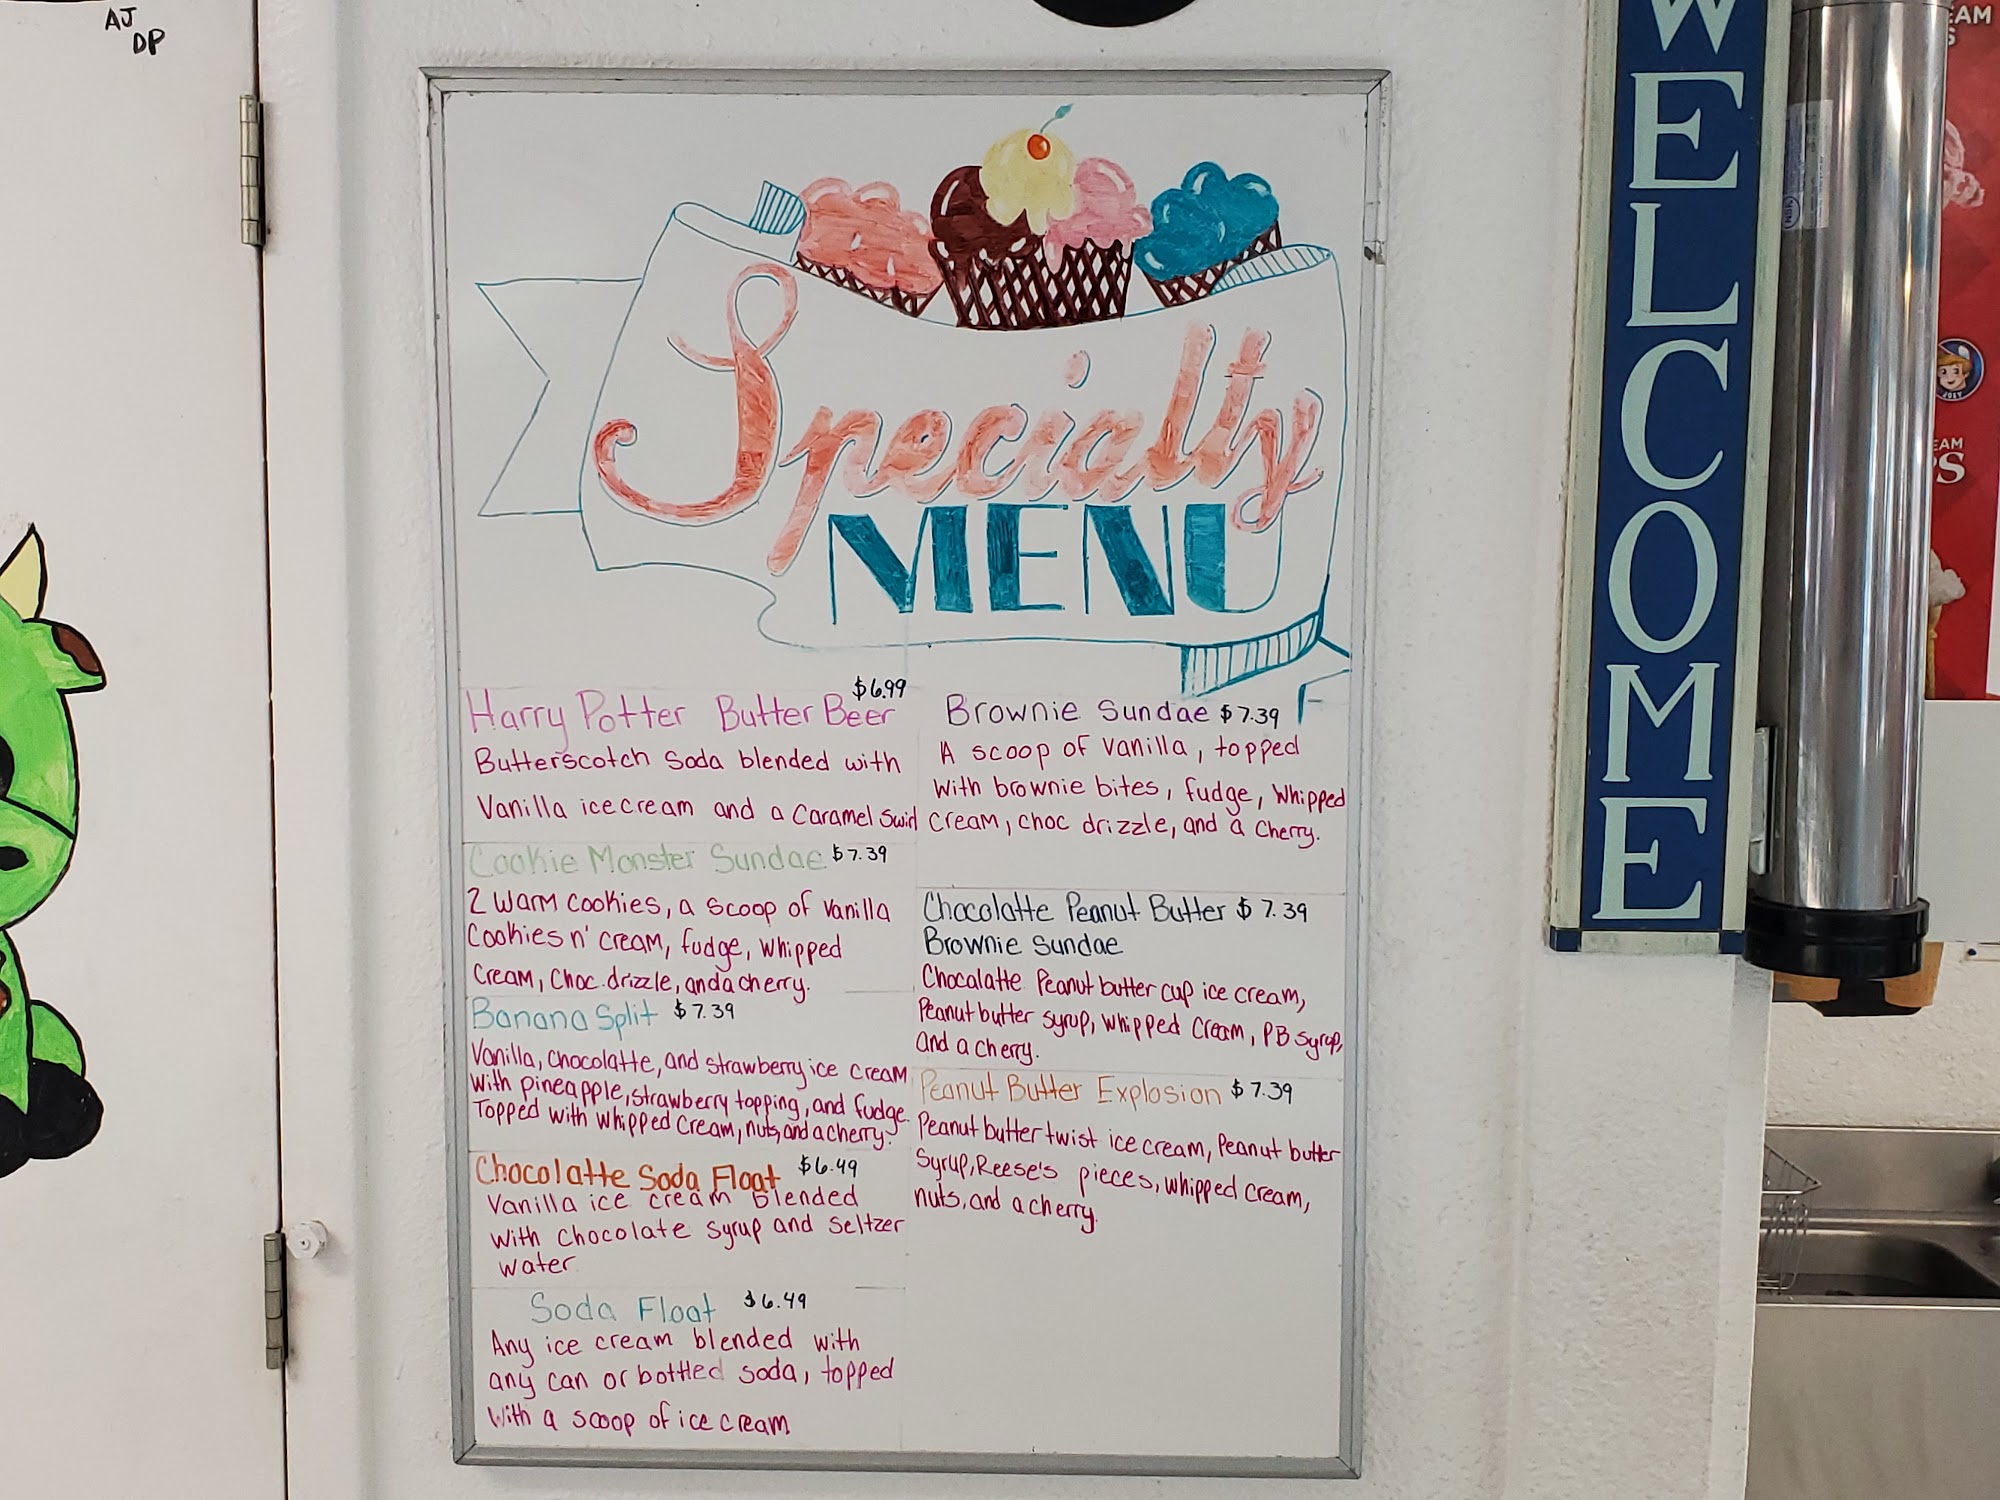 AJ
DP
Specialty
MENU
Harry Potter Butter Beer $6.99
Butterscotch Soda blended with
Vanilla ice cream and a Caramel Swirl
Cookie Monster Sundae $7.39
2 Warm Cookies, a scoop of vanilla
Cookies n' cream, fudge, whipped
cream, choc. drizzle, and a cherry.
Banana Split $7.39
Vanilla, chocolatte, and strawberry ice cream
with pineapple, strawberry topping, and fudge.
Topped with whipped cream, nuts, and a cherry.
Chocolatte Soda Float $6.49
Vanilla ice cream blended
with chocolate syrup and seltzer
water
Soda Float $6.49
Any ice cream blended with
any can or bottled soda, topped
with a scoop of ice cream
Brownie Sundae $7.39
A scoop of vanilla, topped
with brownie bites, fudge, whipped
cream, choc drizzle, and a cherry.
Chocolatte Peanut Butter $7.39
Brownie Sundae
Chocalatte Peanut butter cup ice cream,
Peanut butter syrup, whipped cream, PB syrup,
and a cherry.
Peanut Butter Explosion $7.39
Peanut butter twist ice cream, Peanut butter
Syrup, Reese's pieces, whipped cream,
nuts, and a cherry.
WELCOME
JOEY